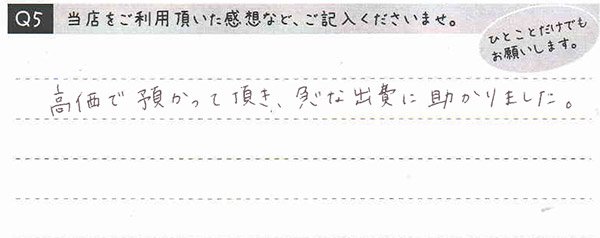 Q5 当店をご利用頂いた感想など、ご記入くださいませ。
ひとことだけでも
お願いします。
高価で預かって頂き、急な出費に助かりました。